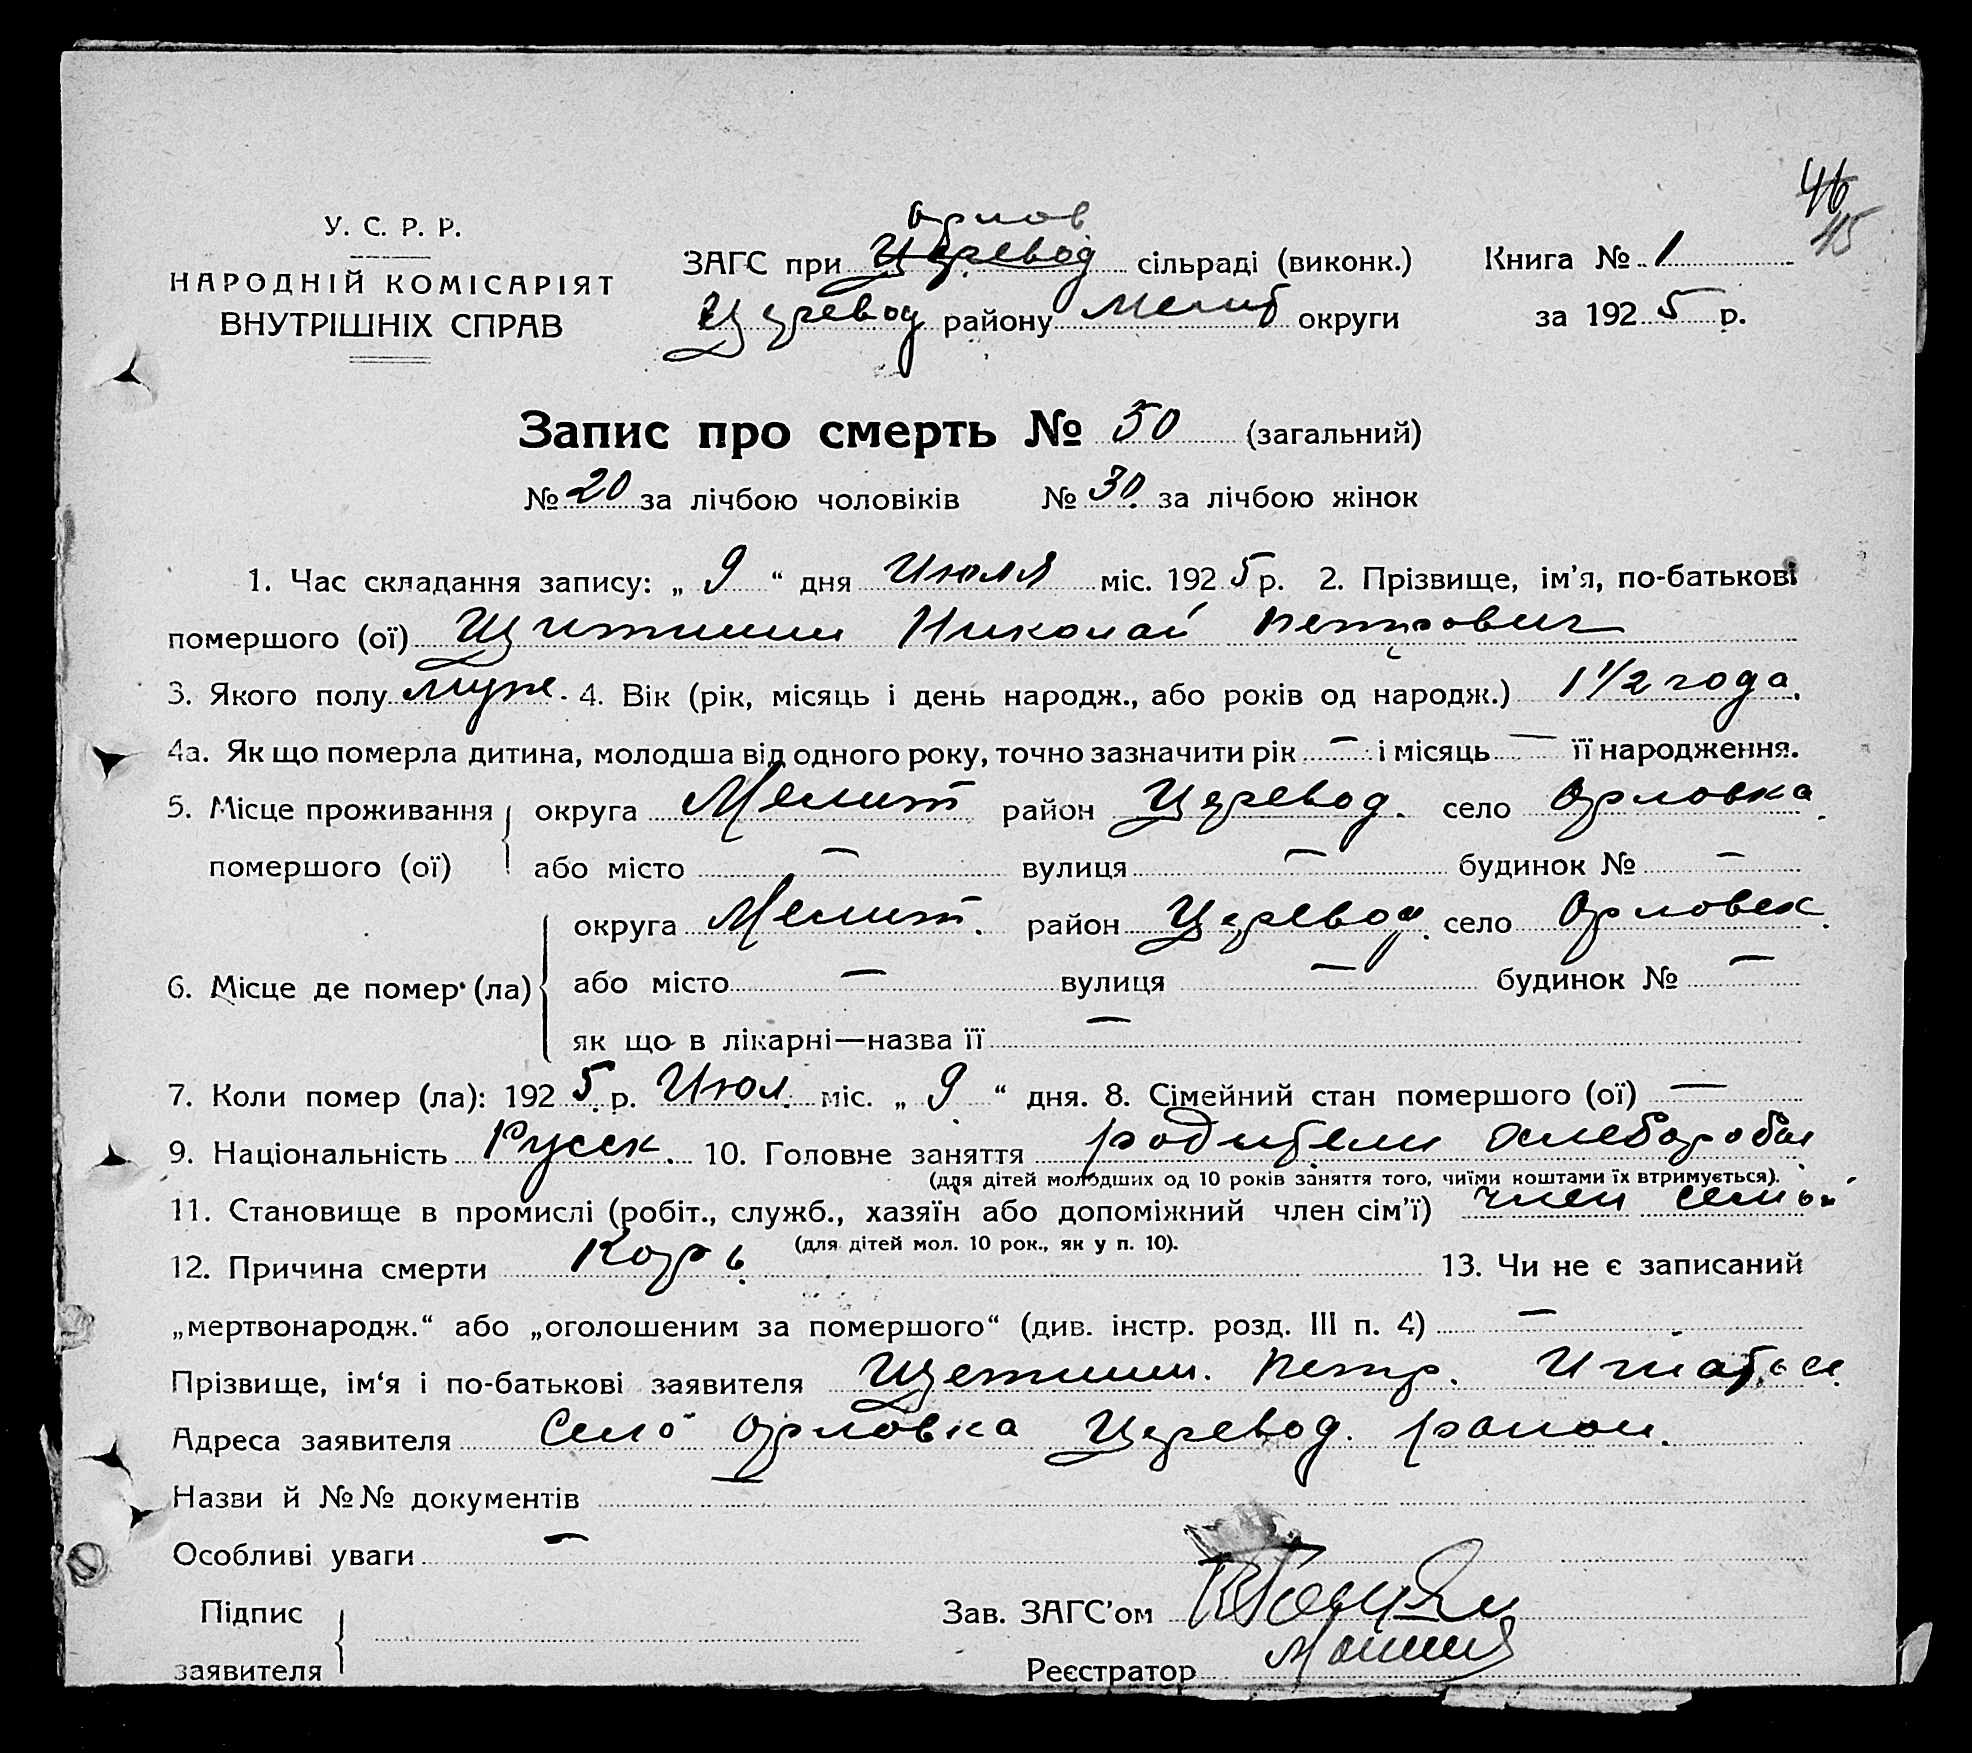 46
45
У. С. Р. Р.
НАРОДНІЙ КОМІСАРІЯТ
ВНУТРІШНІХ СПРАВ
Орлов
ЗАГС при Церевод сільраді (виконк.)
Церевод району Мелит округи
Книга № 1
за 1925 р.
Запис про смерть № 50 (загальний)
№ 20 за лічбою чоловіків № 30 за лічбою жінок
1. Час складання запису: „ 9 “ дня Июля міс. 1925 р. 2. Прізвище, ім'я, по-батькові
помершого (ої) Щитинин Николай Петрович
3. Якого полу муж. 4. Вік (рік, місяць і день народж., або років од народж.) 1 1/2 года.
4а. Як що померла дитина, молодша від одного року, точно зазначити рік — і місяць — її народження.
5. Місце проживання округа Мелит район Церевод. село Орловка.
помершого (ої) або місто — вулиця — будинок № —
округа Мелит. район Церевод. село Орловск.
6. Місце де помер (ла) або місто — вулиця — будинок № —
як що в лікарні—назва її —
7. Коли помер (ла): 1925 р. Июл. міс. „ 9 “ дня. 8. Сімейний стан помершого (ої) —
9. Національність Русск. 10. Головне заняття родители хлеборобы
(для дітей молодших од 10 років заняття того, чиїми коштами їх втримується).
11. Становище в промислі (робіт., служб., хазяїн або допоміжний член сім'ї) член семьи
(для дітей мол. 10 рок., як у п. 10).
12. Причина смерти Корь 13. Чи не є записаний
„мертвонародж.“ або „оголошеним за помершого“ (див. інстр. розд. III п. 4) —
Прізвище, ім'я і по-батькові заявителя Щетинин. Петр. Игнатьев.
Адреса заявителя Село Орловка Церевод. район.
Назви й №№ документів —
Особливі уваги —
Підпис
заявителя
Зав. ЗАГС'ом
Реєстратор